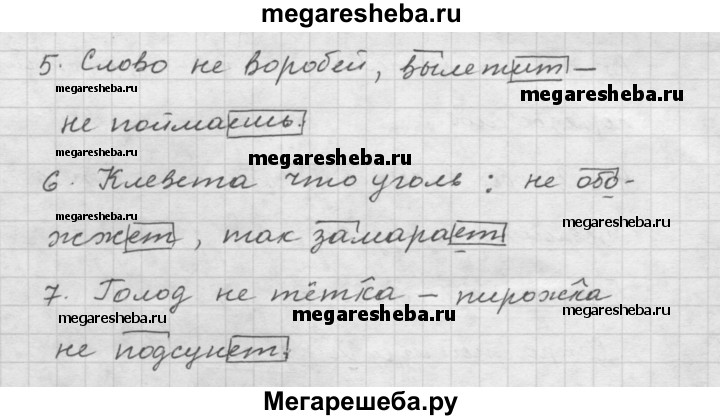 megaresheba.ru
5. Слово не воробей, вылетит –
megaresheba.ru
megaresheba.ru
не поймаешь.
megaresheba.ru
megaresheba.ru
6. Клевета что уголь: не обо-
megaresheba.ru
жжет, так замарает
megaresheba.ru
7. Голод не тётка – пирожка
megaresheba.ru
megaresheba.ru
megaresheba.ru
не подсунет.
Мегарешеба.ру